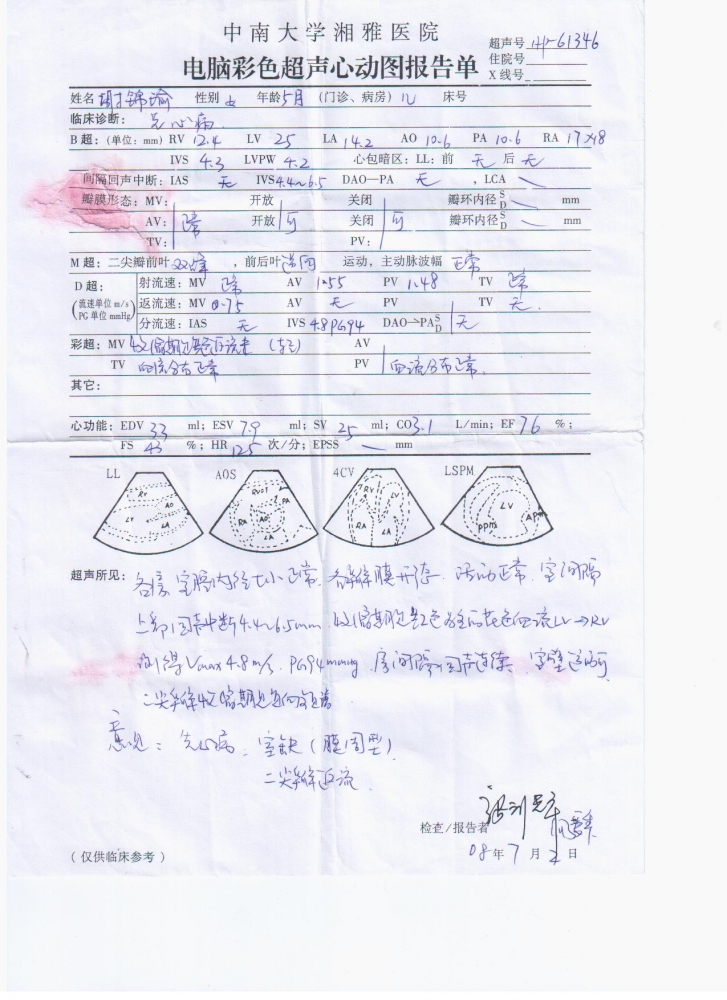 中南大学湘雅医院
电脑彩色超声心动图报告单
超声号 61346
住院号
X线号
姓名 胡锦瑜 性别 女 年龄 5月 (门诊、病房) 儿 床号
临床诊断: 先心病
B超:(单位:mm) RV 12.4 LV 25 LA 14.2 AO 10.6 PA 10.6 RA 17×18
IVS 4.3 LVPW 4.2 心包暗区:LL:前 无 后 无
间隔回声中断:IAS 无 IVS 4.4~6.5 DAO—PA 无 ,LCA
瓣膜形态:MV: 开放 关闭 瓣环内径 S D mm
AV: 正常 开放 可 关闭 可 瓣环内径 S D mm
TV: PV:
M超:二尖瓣前叶 双峰 ,前后叶 逆向 运动,主动脉波幅 正常
D超: (流速单位 m/s PG单位 mmHg)
射流速:MV 正常 AV 1.55 PV 1.48 TV 正常
返流速:MV 0.75 AV 无 PV TV 无
分流速:IAS 无 IVS 4.8 PG94 DAO→PA S D 无
彩超:MV 收缩期 返流束 AV
TV 血流分布正常 PV 血流分布正常
其它:
心功能:EDV 33 ml;ESV 7.9 ml;SV 25 ml;CO 3.1 L/min;EF 76 %;
FS 43 %;HR 125 次/分;EPSS mm
LL AOS 4CV LSPM
RV AO LV LA
RVOT PA RA AO LA
RV LV RA LA
LV PPM APM
超声所见: 各房室腔内径大小正常,各瓣膜开放、活动正常,室间隔
上部回声中断4.4~6.5mm,收缩期 红色 血流LV→RV
测得Vmax 4.8m/s,PG94mmHg,房间隔回声连续,室壁运动可,
二尖瓣收缩期
意见: 先心病 室缺(膜周型)
二尖瓣返流
检查/报告者
08年7月2日
(仅供临床参考)